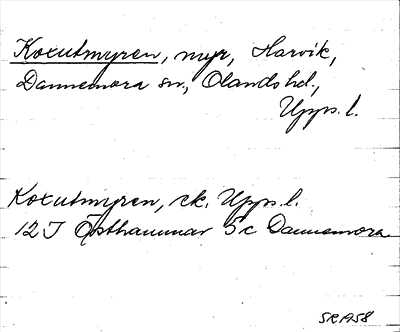 Koxutmyren, myr, Harvik,
Dannemora sn, Olands hd.,
Upps. l.
Koxutmyren, ek. Upps. l.
12 I Östhammar 5c Dannemora
SR 1958